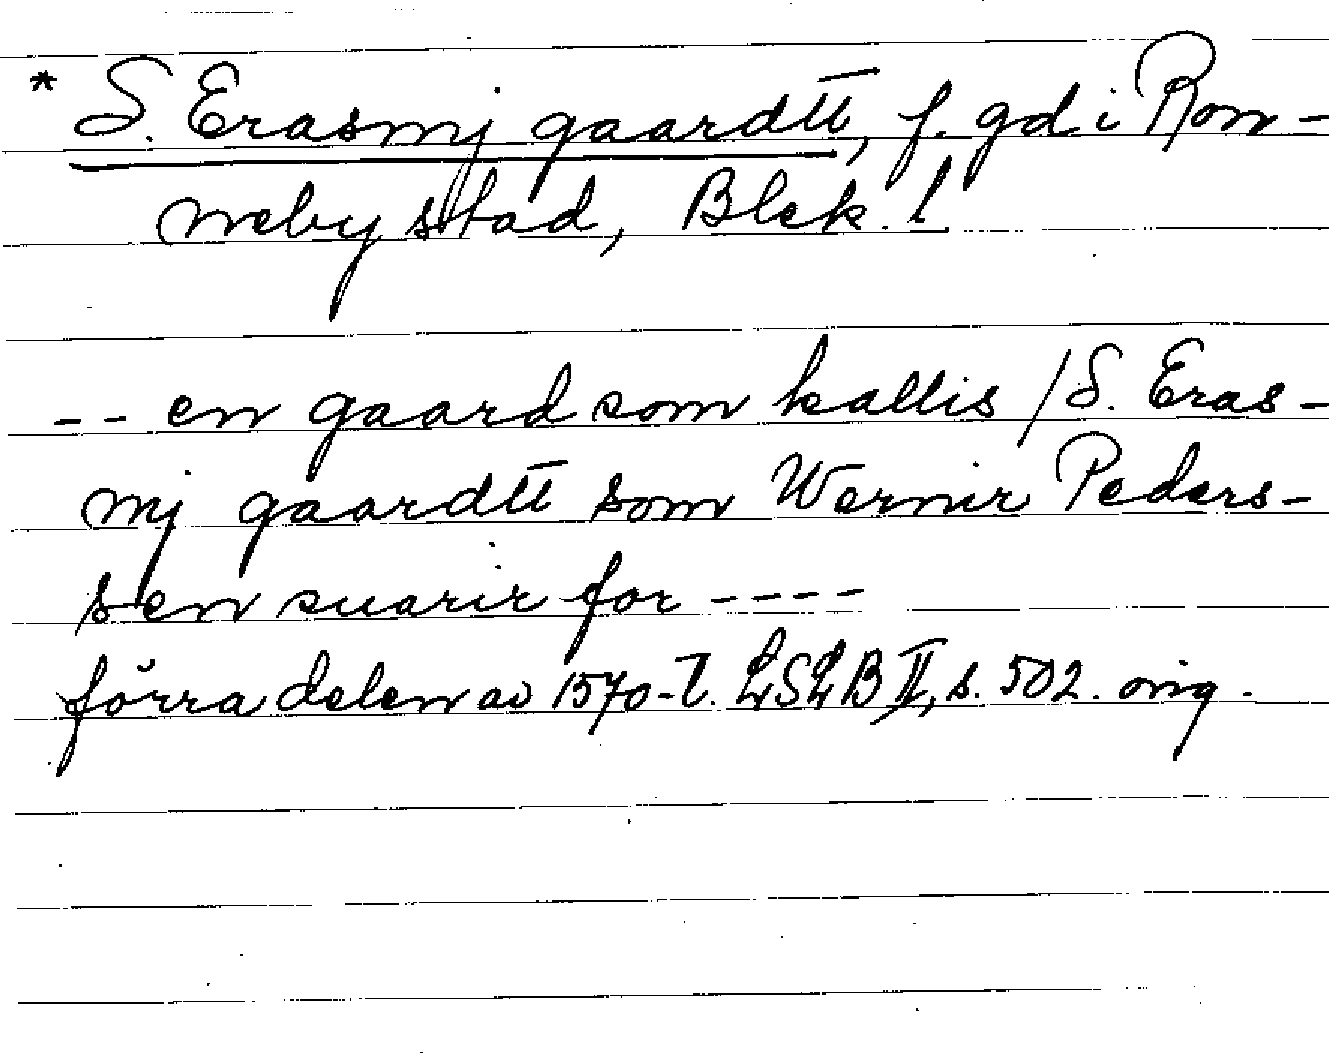 * S. Erasmj gaardtt, f. gd i Ron-
neby stad, Blek. l.
-- en gaard som kallis / S. Eras-
mj gaardtt som Wernir Peders-
sen suarir for ----
förra delen av 1570-t. LSLB II, s. 502. orig.